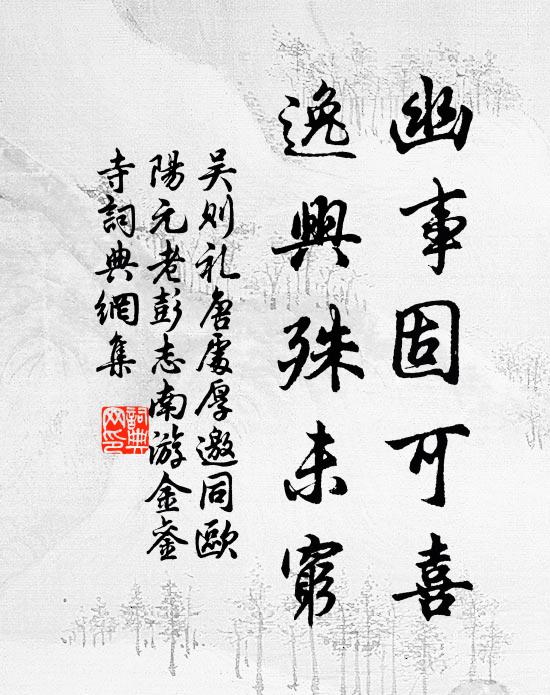 幽事固可喜
逸興殊未窮
吴则礼唐處厚邀同歐
陽元老彭志南游金銮
寺詞典網集
詞典
网印